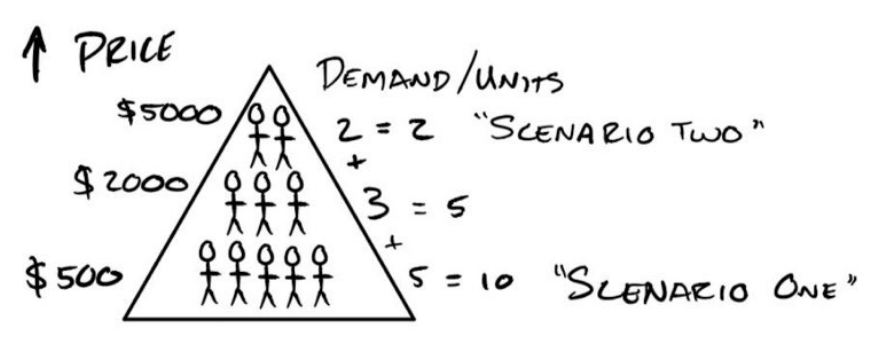 ↑ PRICE
DEMAND/UNITS
$5000 2 = 2 "SCENARIO TWO"
+
$2000 3 = 5
+
$500 5 = 10 "SCENARIO ONE"